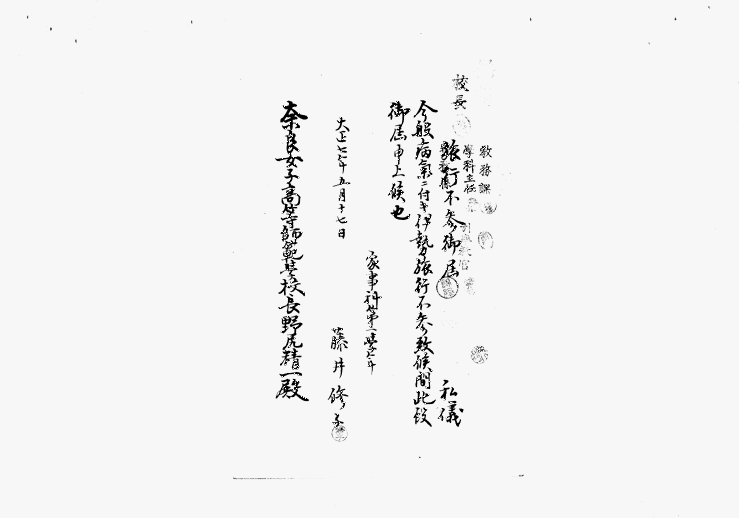 教務課
學科主任
校長
旅行不参御届
私儀
今般病氣ニ付キ伊勢旅行不参致候間此段
御届申上候也
大正七年五月十七日
家事科第一學年
藤井修子
奈良女子高等師範學校長野尻精一殿